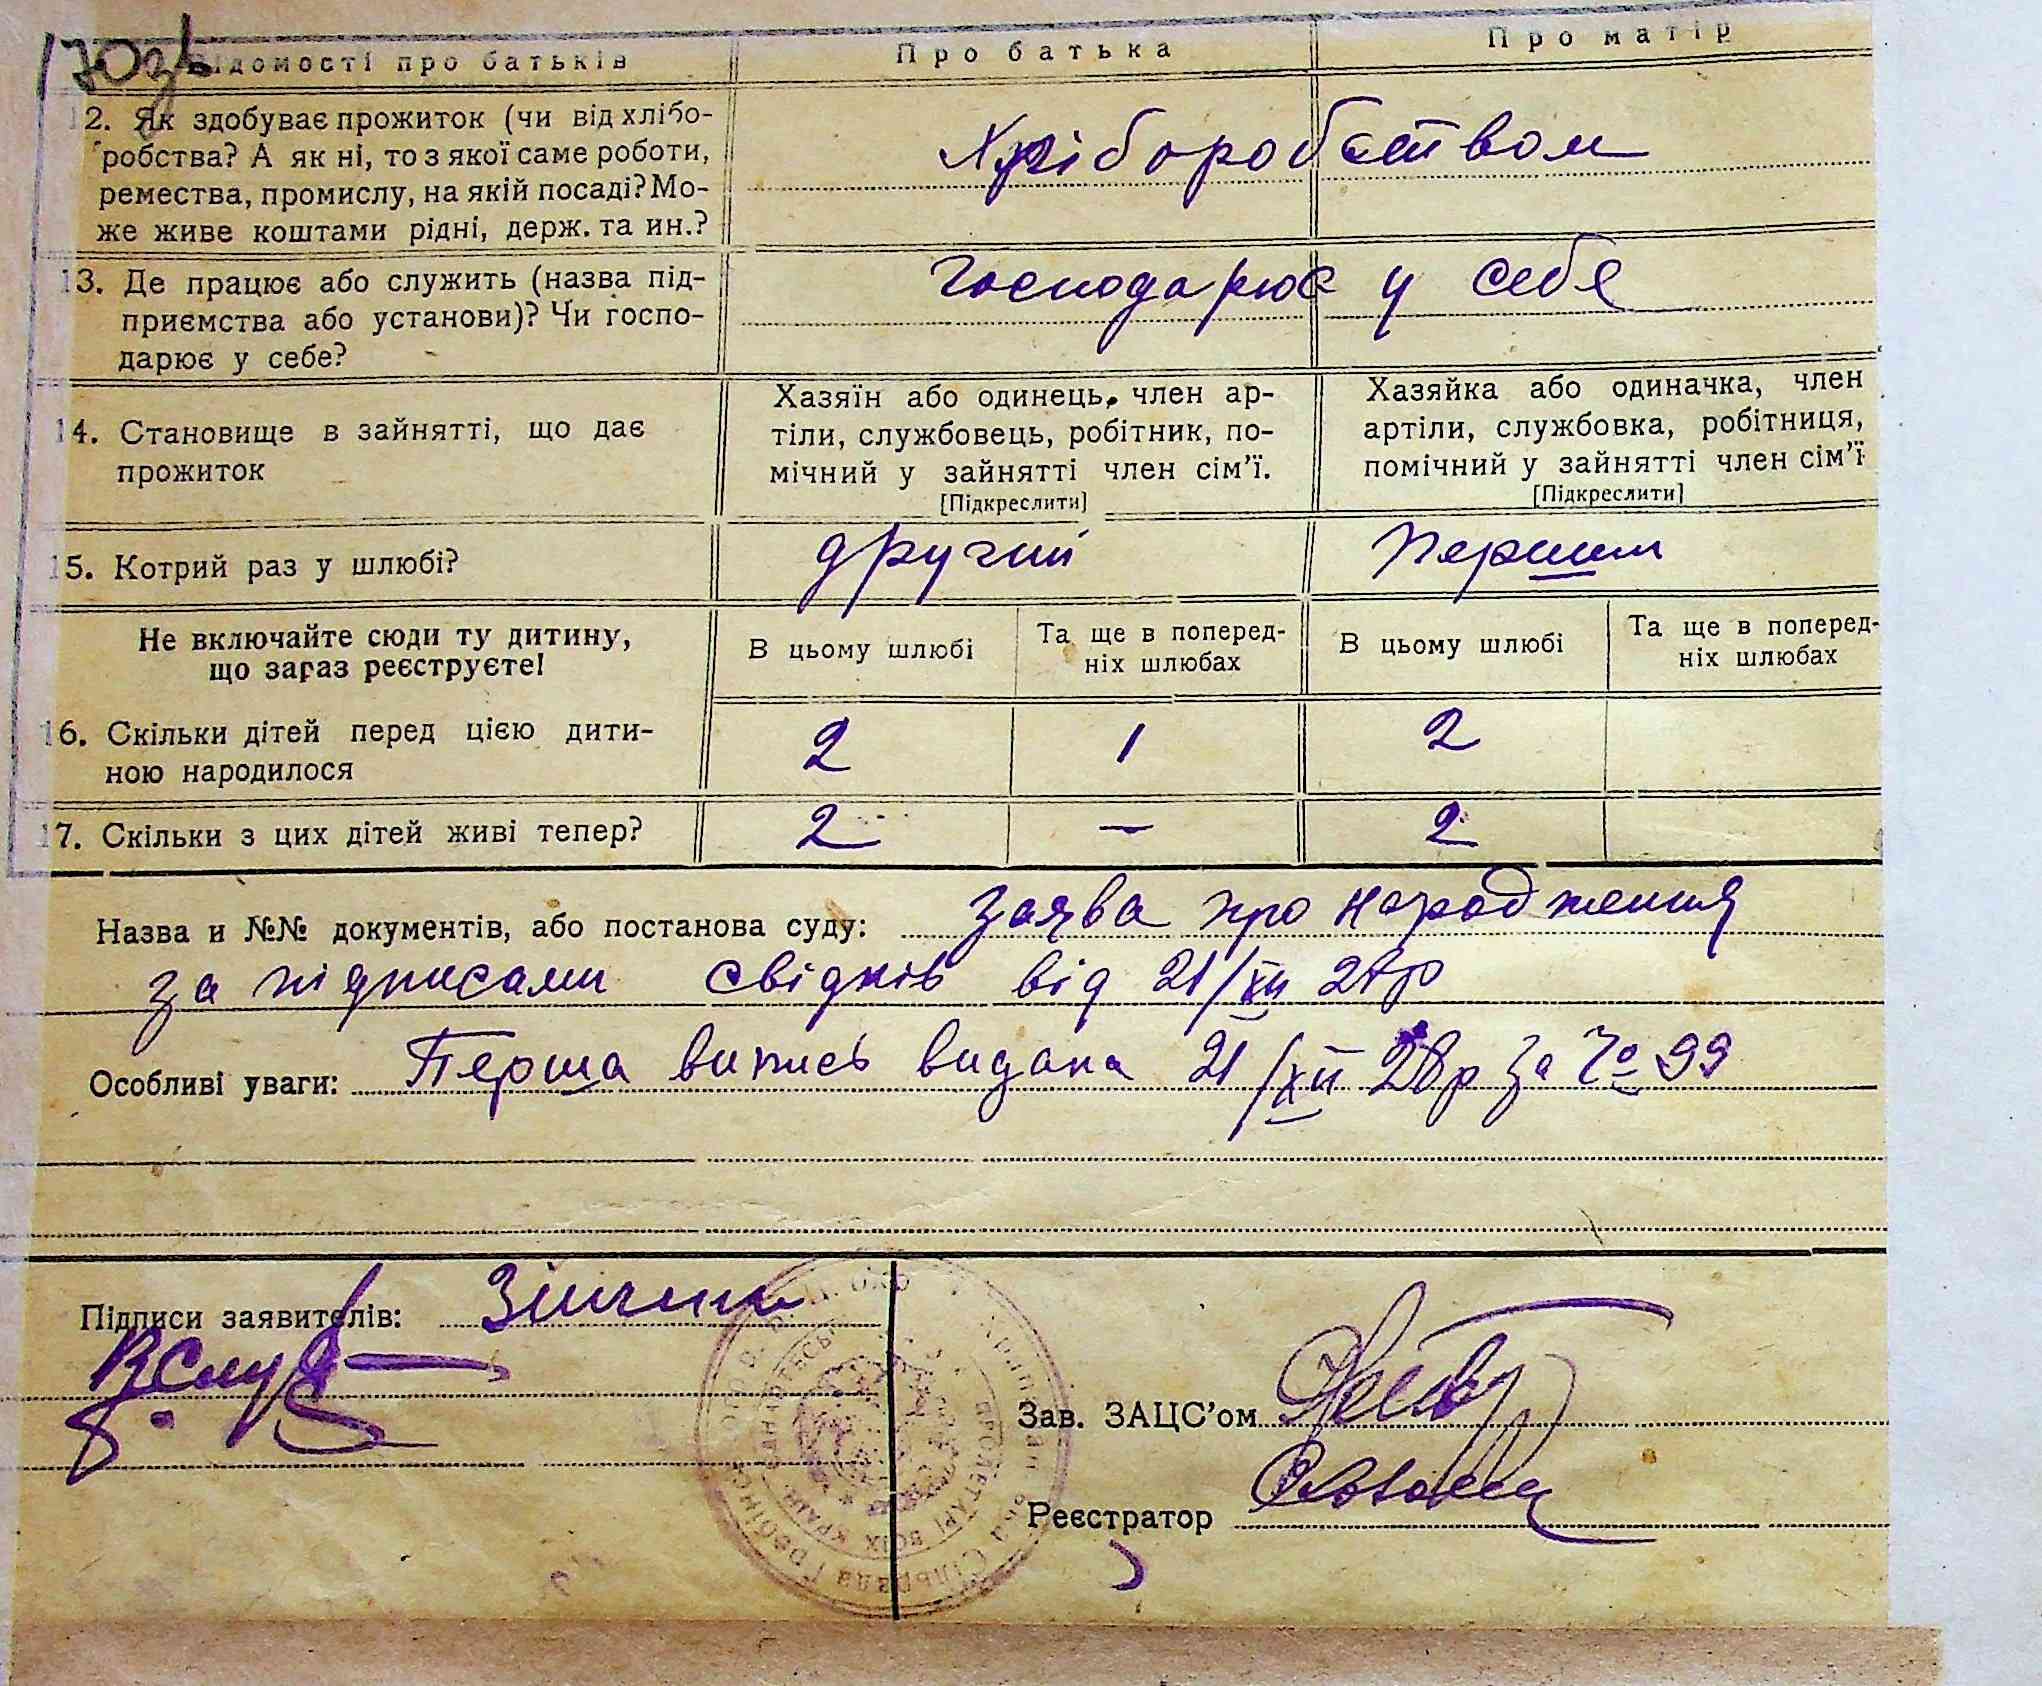 170зв
Відомості про батьків Про батька Про матір
12. Як здобуває прожиток (чи від хлібо-
робства? А як ні, то з якої саме роботи,
ремества, промислу, на якій посаді? Мо-
же живе коштами рідні, держ. та ин.?
Хліборобством
13. Де працює або служить (назва під-
приємства або установи)? Чи госпо-
дарює у себе?
Господарює у себе
14. Становище в зайнятті, що дає
прожиток
Хазяїн або одинець, член ар-
тіли, службовець, робітник, по-
мічний у зайнятті член сім'ї.
[Підкреслити]
Хазяйка або одиначка, член
артіли, службовка, робітниця,
помічний у зайнятті член сім'ї
[Підкреслити]
15. Котрий раз у шлюбі? другий першим
Не включайте сюди ту дитину,
що зараз реєструєте!
В цьому шлюбі
Та ще в поперед-
ніх шлюбах
В цьому шлюбі
Та ще в поперед-
ніх шлюбах
16. Скільки дітей перед цією дити-
ною народилося
2 1 2
17. Скільки з цих дітей живі тепер? 2 — 2
Назва и №№ документів, або постанова суду: заява про народження
за підписами свідків від 21/XII 28р
Особливі уваги: Перша випись видана 21/XII 28р за Чо 99
Підписи заявителів:
Зав. ЗАЦС'ом
Реєстратор
пролетарі всіх країн
Сільрада